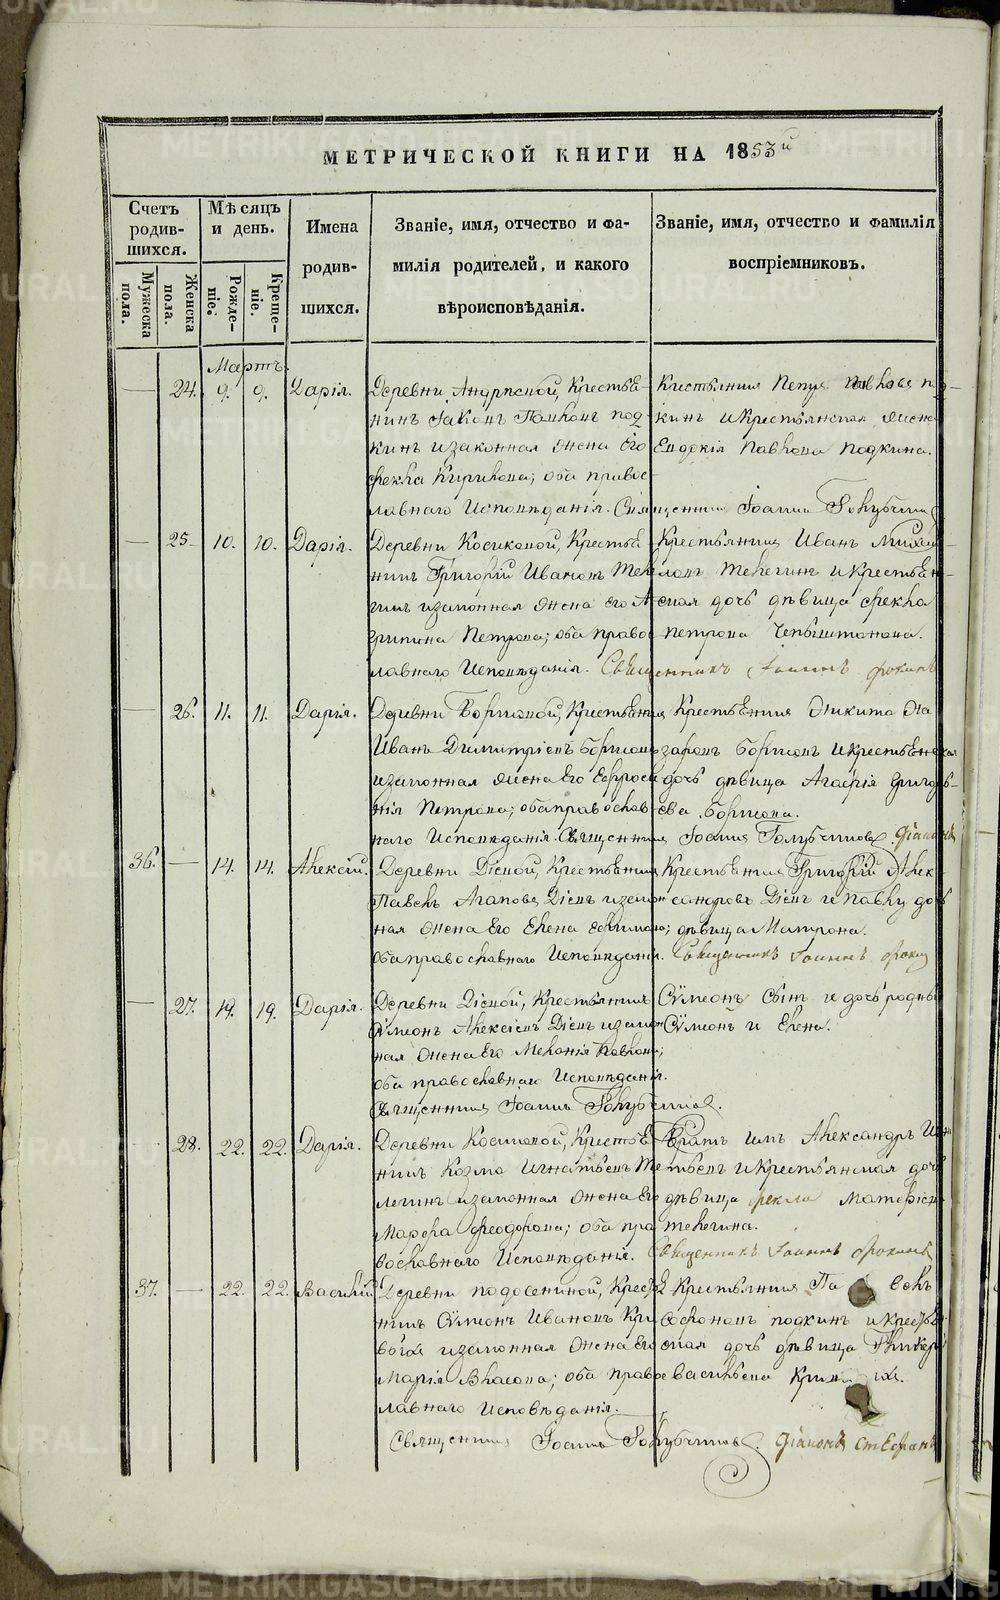 МЕТРИЧЕСКОЙ КНИГИ НА 1853й
Счетъ родив-шихся.
Мѣсяцъ и день.
Имена родив-шихся.
Званіе, имя, отчество и фа-
милія родителей, и какого
вѣроисповѣданія.
Званіе, имя, отчество и фамилія
воспріемниковъ.
Мужеска пола.
Женска пола.
Рожде-ніе.
Креще-ніе.
Мартъ.
24. 9. 9. Дарія.
Деревни Крестья-
нинъ Яковъ Павловъ под-
кинъ изаконная жена его
Фекла Кирилова; оба право-
славнаго Исповѣданія. Священникъ Іоаннъ Голубчиковъ
Павловъ под-
кинъ икрестьянская жена
Евдокія Павлова подкина.
25. 10. 10. Дарія.
Деревни Косиковой, Крестья-
нинъ Григорій Ивановъ Теле-
гинъ изаконная жена его А-
грипина Петрова; оба право-
славнаго Исповѣданія. Священникъ Іоаннъ Фокинъ
Крестьянинъ Иванъ Михай-
ловъ телегинъ икрестьян-
ская дочь дѣвица Фекла
Петрова
26. 11. 11. Дарія.
Деревни Борисовой, Крестьянинъ
Иванъ Димитріевъ Борисовъ
изаконная жена Его Ефроси-
нія Петрова; оба православ-
наго Исповѣданія. Священникъ Іоаннъ Голубчиковъ. діаконъ
Крестьянинъ Никита На-
заровъ Борисовъ икрестьянская
дочь дѣвица Агафія Григорь-
ева Борисова.
36. 14. 14. Алексій.
Деревни Діевой, Крестьянинъ
Павелъ Агаповъ Діевъ изакон-
ная жена Его Елена Ефимова;
оба православнаго Исповѣданія. Священникъ Іоаннъ Фокинъ
Крестьянинъ Григорій Алек-
сандровъ Діевъ и Павлу дочь
дѣвица Матрона.
27. 19. 19. Дарія.
Деревни Діевой, Крестьянинъ
Сѷмеонъ Алексіевъ Діевъ изакон-
ная жена Его Меланія Павлова;
оба православнаго Исповѣданія.
Священникъ Іоаннъ Голубчиковъ.
Сѷмеонъ сынъ и дочь родные
Сѷмеонъ и Елена.
28. 22. 22. Дарія.
Деревни Косиковой, Крестья-
нинъ Козма Игнатьевъ Те-
легинъ изаконная жена Его
Марфа Феодорова; оба пра-
вославнаго Исповѣданія. Священникъ Іоаннъ Фокинъ
Братъ имъ Александръ Игна-
тьевъ икрестьянская дочь
дѣвица Фекла
телегина.
37. 22. 22. Василій
Деревни подосениной, Крестья-
нинъ Сѷмеонъ Ивановъ Кри-
изаконная жена Его
Марія Власова; оба право-
славнаго Исповѣданія.
Священникъ Іоаннъ Голубчиковъ. діаконъ стефанъ
Крестьянинъ Павелъ
подкинъ икрестьян-
ская дочь дѣвица Гликері
васильева